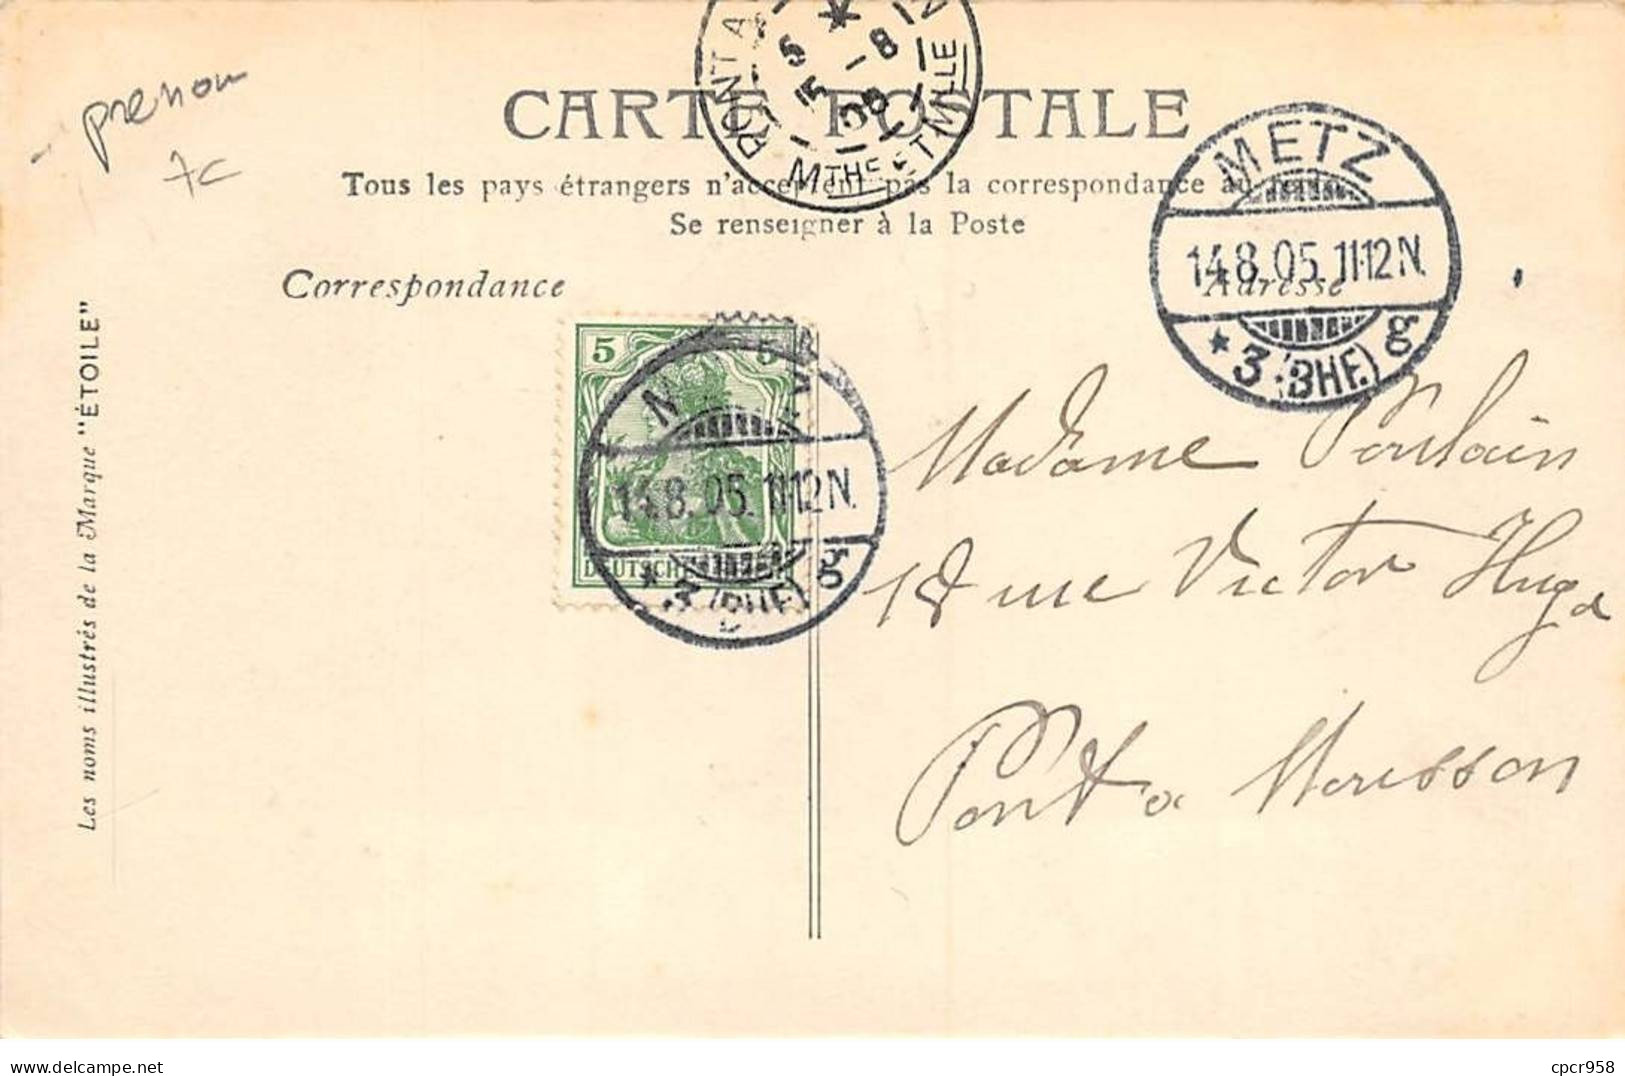 prenom
7c
CARTE POSTALE
PONT A
5
15 -8
05
MTHE ET MLLE
METZ
14.8.05.11-12N.
* 3.(BHF.) g
Tous les pays étrangers n'acceptent pas la correspondance au
Se renseigner à la Poste
Correspondance
Adresse
Les noms illustrés de la Marque "ÉTOILE"
5 5
DEUTSCHES
14.8.05.11-12N.
* 3 (BHF.) g
Madame Poulain
18 rue Victor Hugo
Pont à Mousson
delcampe.net
cpcr958